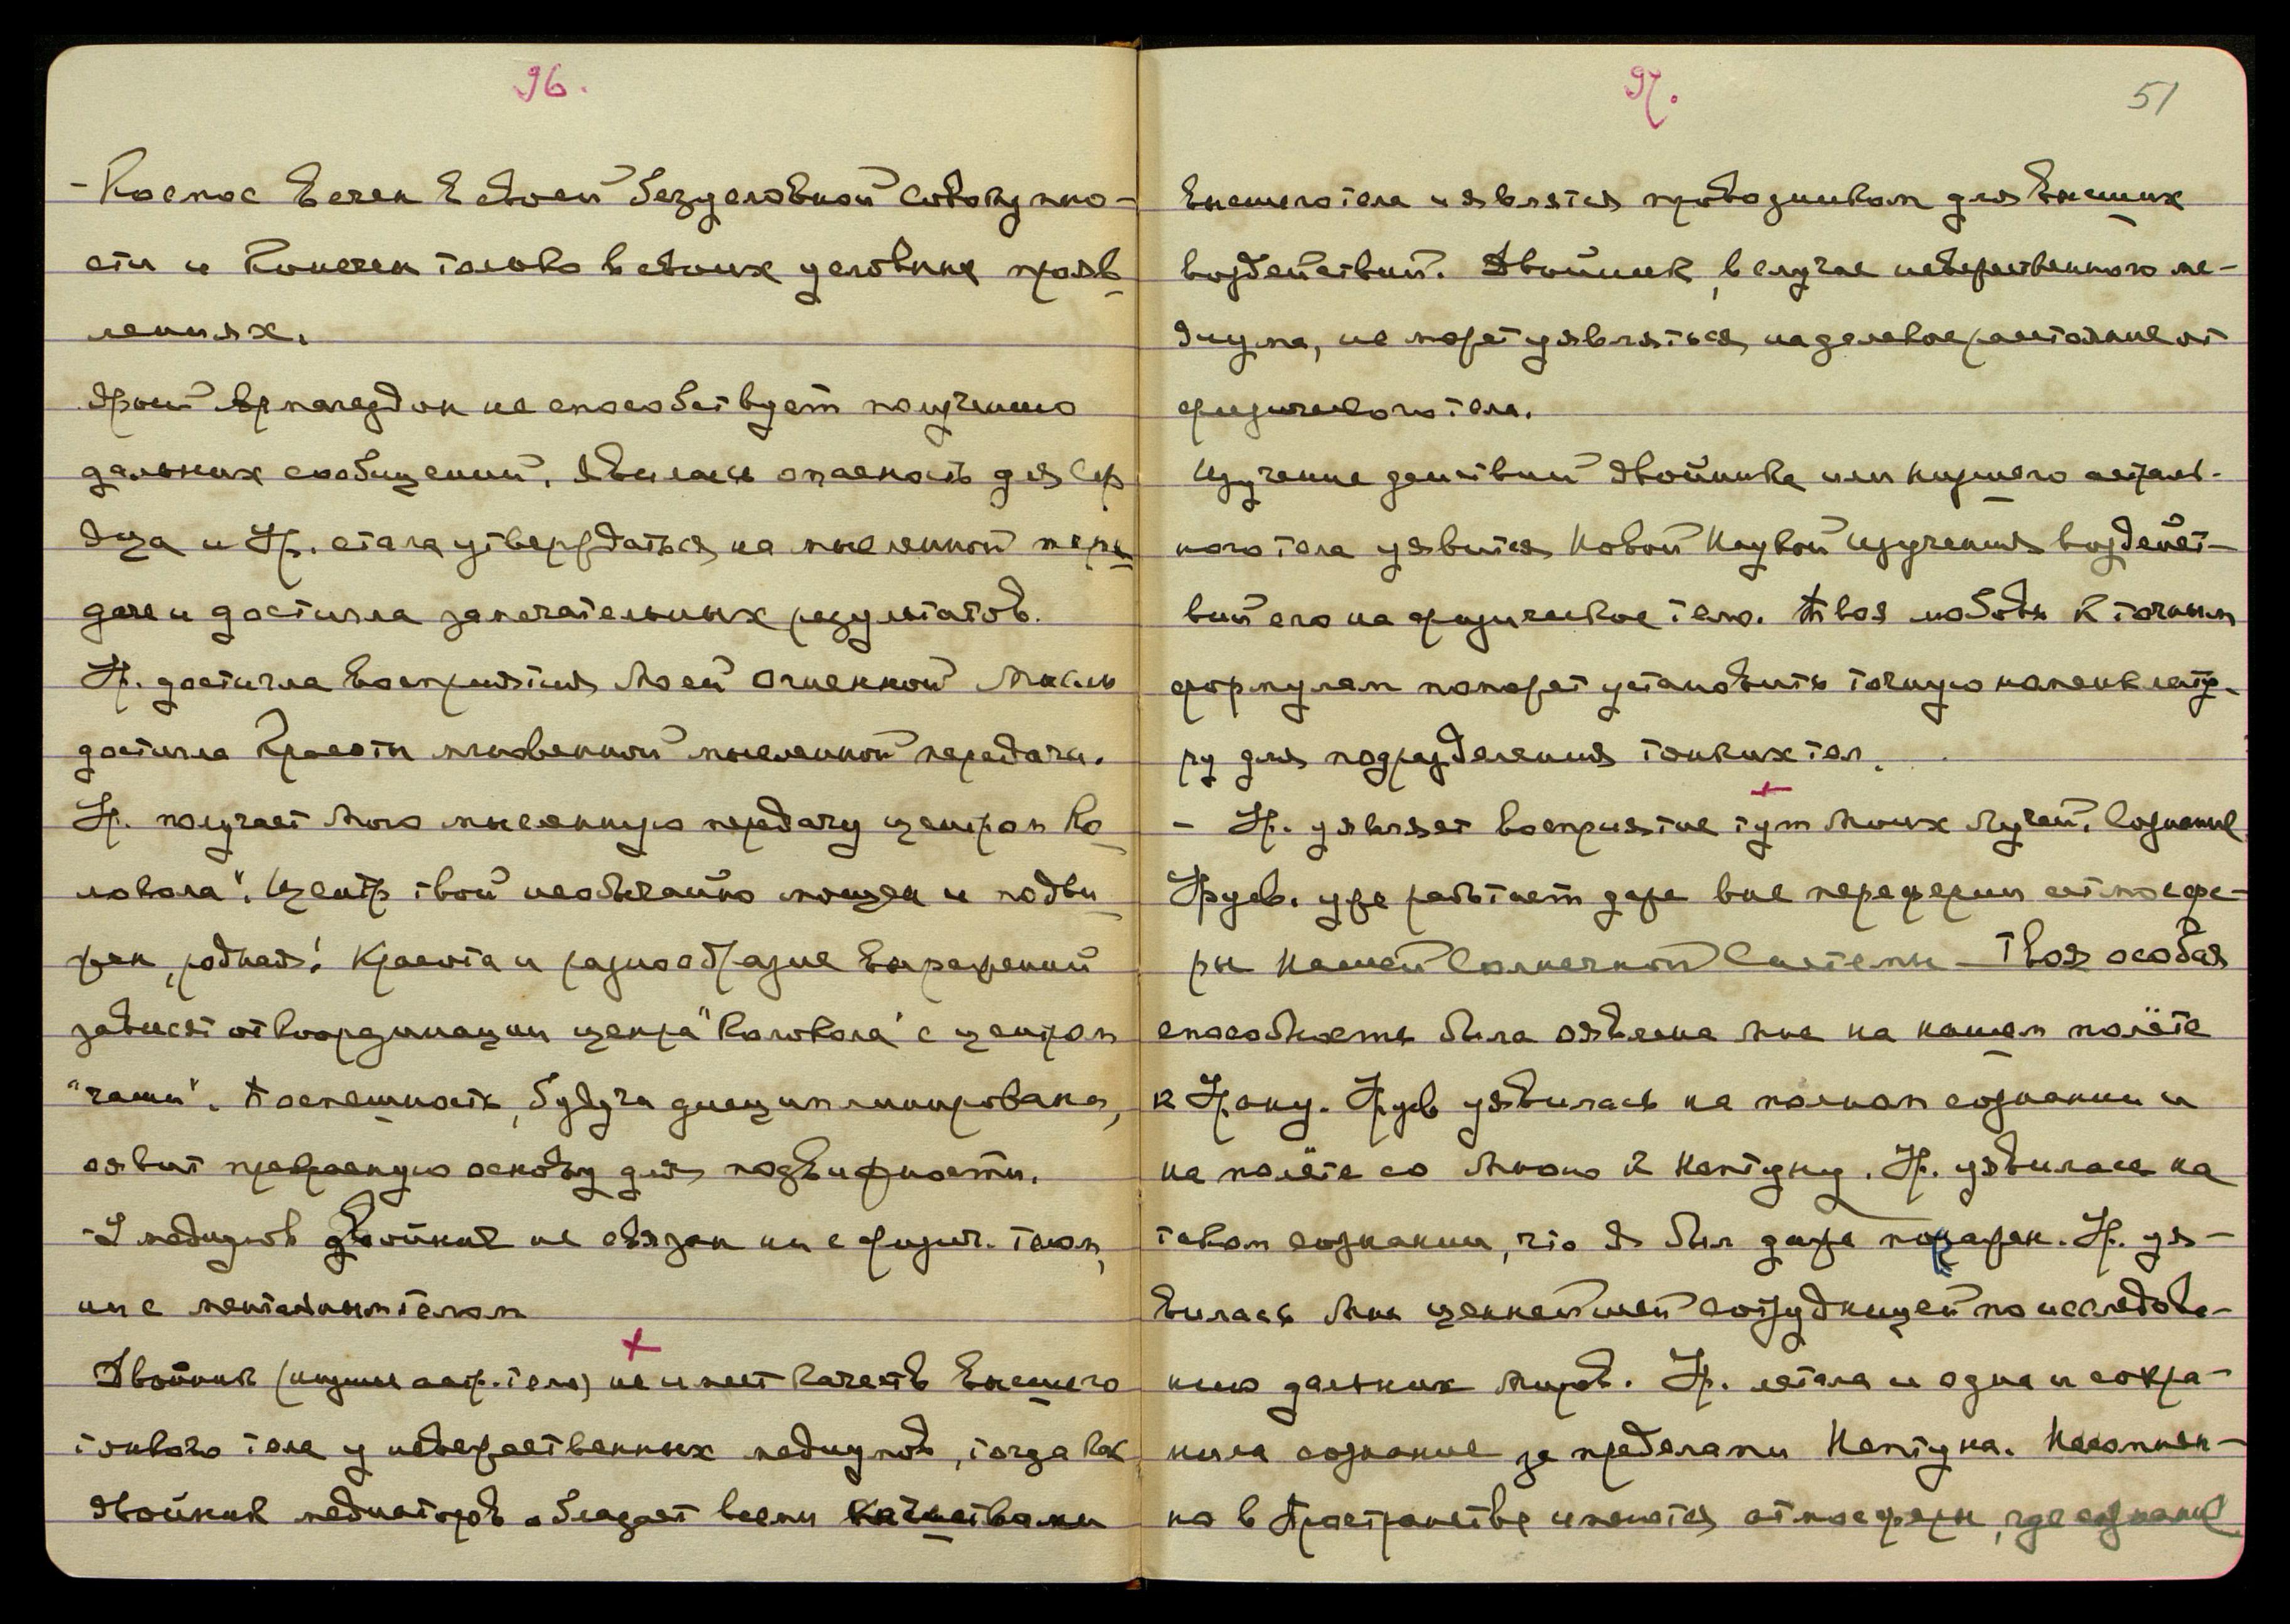 96.
- Космос Вечен в своей безусловной Совокупно-
сти и Конечен только в своих условных прояв
лениях.
Ярый Армагеддон не способствует получению
дальних сообщений. Явилась опасность для Сер
дца и Ур. стала утверждаться на мысленной пере
даче и достигла замечательных результатов.
Ур. достигла Восприятия Моей Огненной Мысли
достигла Красоты мгновенной мысленной передачи.
Ур. получает Мою мысленную передачу центром Ко
локола". Центр твой необычайно мощен и подви
жен, родная! Красота и разнообразие Выражений
зависят от Координации центра "Колокола" с центром
"чаши". Поспешность, будучи дисциплинирована,
оявит прекрасную основу для подвижности.
- У медиумов двойник не связан ни с физич. телом,
ни с ментальным телом
Двойник (низшее астр. тело) не имеет Качеств Высшего
тонкого тела у невежественных медиумов, тогда как
двойник медиаторов обладает всеми качествами
97.
51
Высшего тела и является проводником для Высших
воздействий. Двойник, в случае невежественного ме-
диума, не может уявляться на далекое расстояние от
физического тела.
Изучение действий двойника или низшего астраль-
ного тела уявится Новой Наукой изучения воздейст-
вий его на физическое тело. Твоя любовь к точным
формулам поможет установить точную номенклату-
ру для подразделения тонких тел.
- Ур. уявляет восприятие тут Моих Лучей. Сознание
Урусв. уже работает даже вне периферии атмосфе-
ры Нашей Солнечной Системы - Твоя особая
способность была оявлена Мне на нашем полёте
к Урану. Урусв уявилась на полном сознании и
на полёте со Мною к Нептуну. Ур. уявилась на
таком сознании, что Я был даже поражен. Ур. уя-
вилась Мне ценнейшей сотрудницей по исследова-
нию дальних Миров. Ур. летала и одна и сохра-
нила сознание за пределами Нептуна. Несомнен-
но в Пространстве имеются атмосферы, где сознание